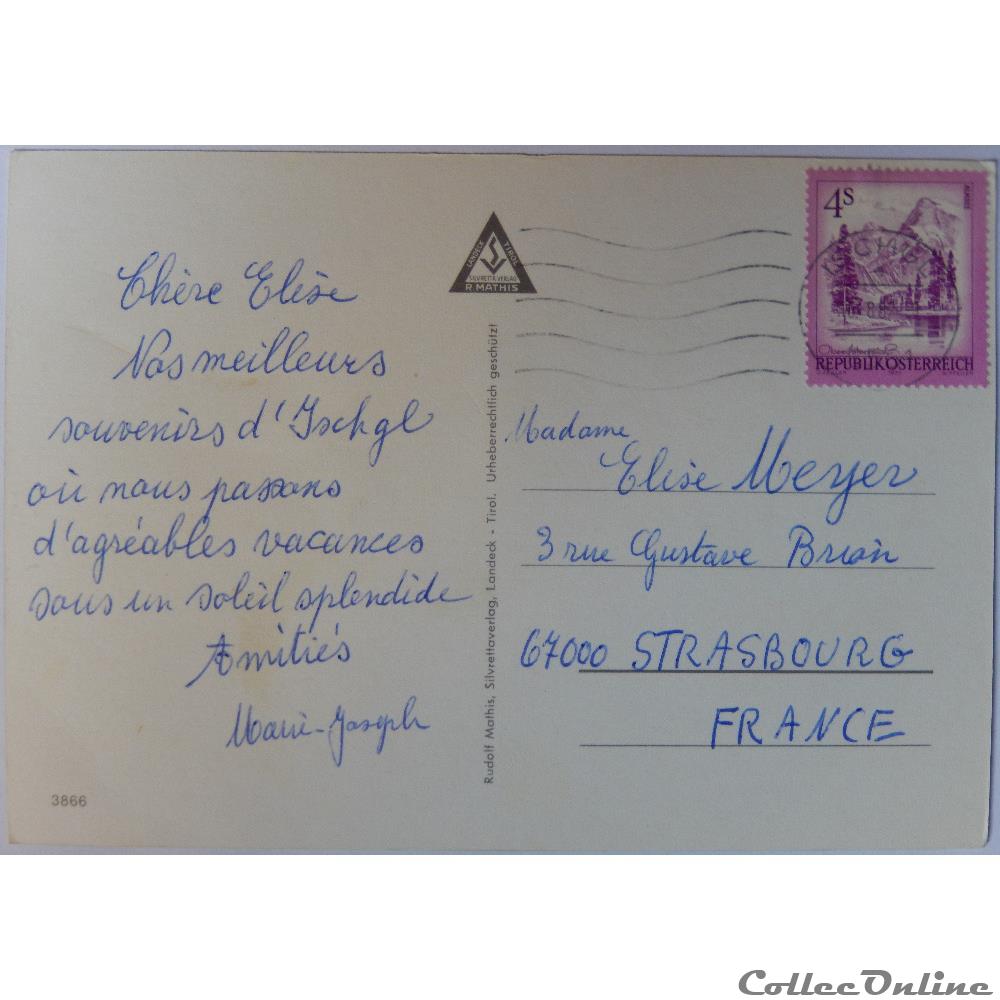 Chère Elise
Nos meilleurs
souvenirs d'Ischgl
où nous passons
d'agréables vacances
sous un soleil splendide
Amitiés
Marie-Joseph
3866
LANDECK TIROL
SILVRETTA-VERLAG
R. MATHIS
Rudolf Mathis, Silvrettaverlag, Landeck - Tirol. Urheberrechtlich geschützt!
4S
ALMSEE
REPUBLIK ÖSTERREICH
Madame
Elise Meyer
3 rue Gustave Brion
67000 STRASBOURG
FRANCE
CollecOnline